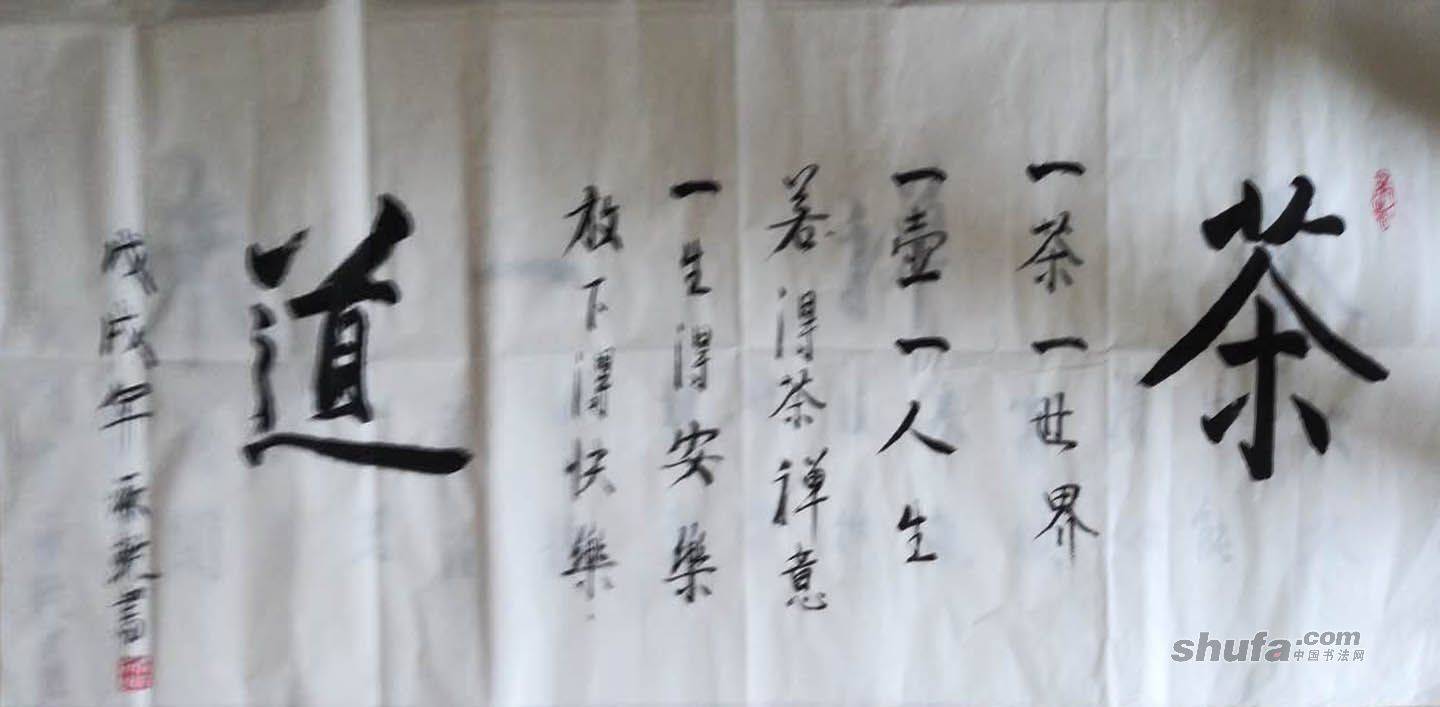 茶
一茶一世界
一壶一人生
若得茶禅意
一生得安樂
放下得快樂
道
戊戌年 書
shufa.com
中国书法网